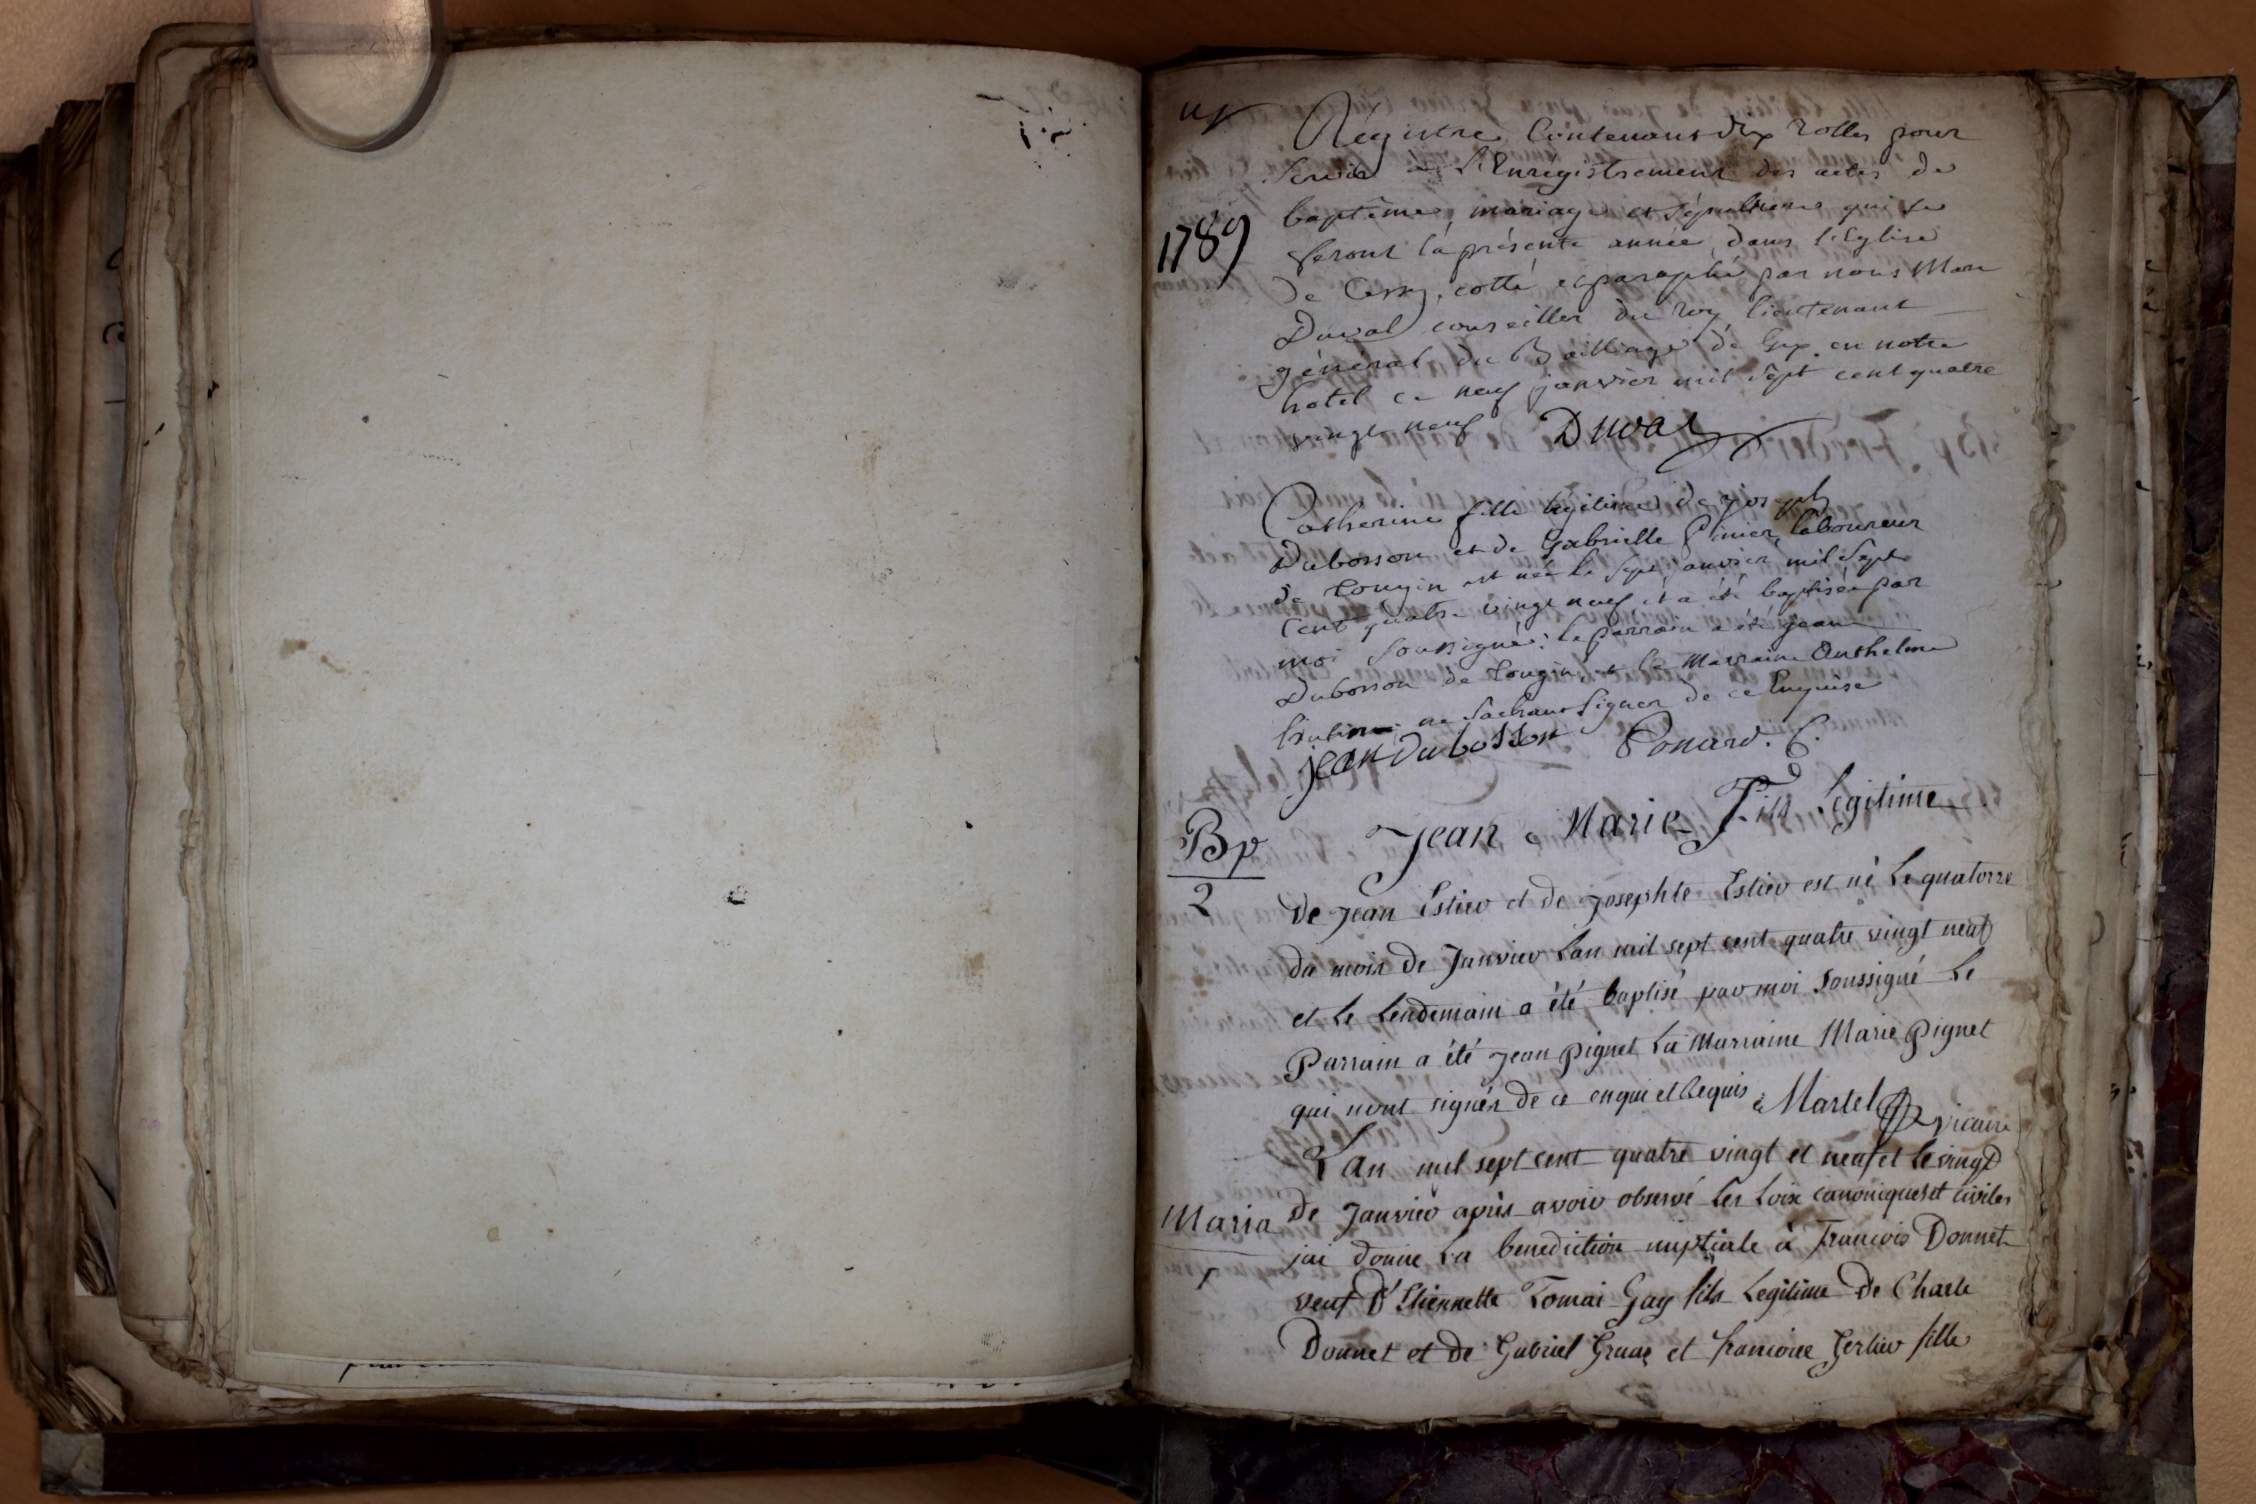 Régistre Contenant dix rolles pour
Servir à L'Enregistrement des actes de
baptême, mariage et sépultures qui se
1789
feront la présente année dans l'Eglise
de Cessy, cotté et paraphé par nous Marc
Duval conseiller du roy lieutenant
général du Bailliage de Gex en notre
hotel ce neuf janvier mil sept cent quatre
vingt neuf Duval
Catherine fille légitime de joseph
Dubosson et de Gabrielle laboureur
de Tougin est née le sept janvier mil sept
cent quatre vingt neuf et a été baptisée par
moi soussigné: le parrain a été jean
Dubosson de Tougin et la Marraine Anthelme
ne sachant signer de ce enquise
jean dubosson Ponard. C.
Bp
2
Jean Marie Fils Legitime
De Jean Estier et de Josephte Estier est né Le quatorze
du mois de Janvier Lan mil sept cent quatre vingt neuf
et le Lendemain a été baptisé par moi Soussigné Le
Parrain a été Jean Pignet La Marraine Marie Pignet
qui n'ont signés de ce enqui et Requis Martel vicaire
L'An mil sept cent quatre vingt et neuf et le vingt
Maria
1
de Janvier après avoir observé Les Loix canoniques et civiles
jai donné La benediction nuptiale à François Donnet
veuf D'Etiennette Tomai Gay fils Legitime De Charle
Donnet et de Gabriel Gruaz et francoise Gerlier fille